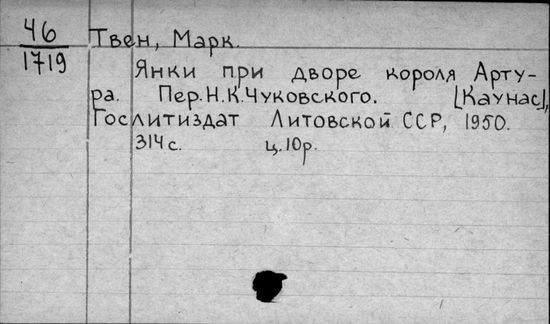 46
1719
Твен, Марк.
Янки при дворе короля Арту-
ра. Пер. Н.К. Чуковского. [Каунас],
Гослитиздат Литовской ССР, 1950.
314 с. ц. 10 р.